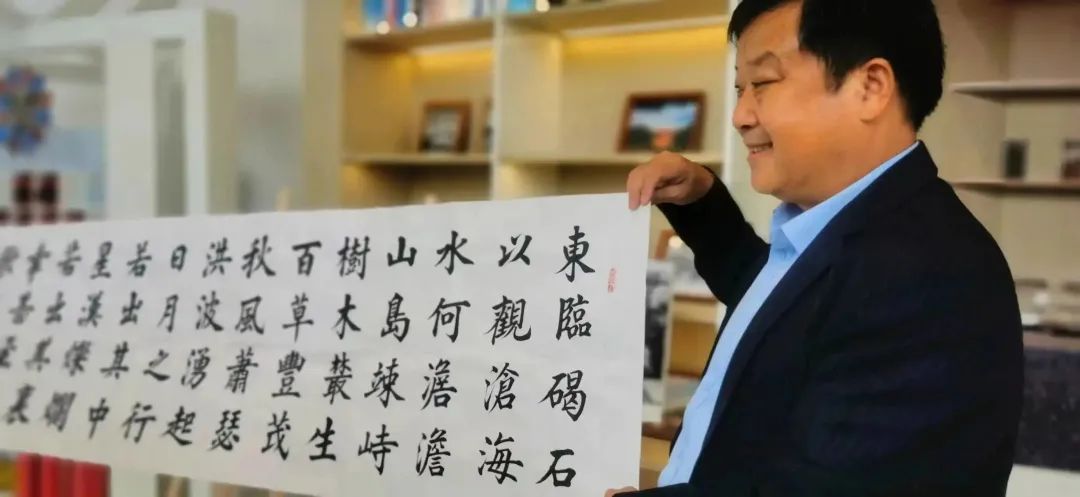 東臨碣石
以觀滄海
水何澹澹
山島竦峙
樹木叢生
百草豐茂
秋風蕭瑟
洪波湧起
日月之行
若出其中
星漢燦爛
若出其裏
幸甚至